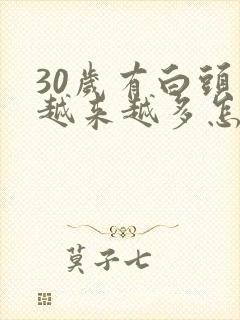 30歲有白頭
越来越多怎
莫子七